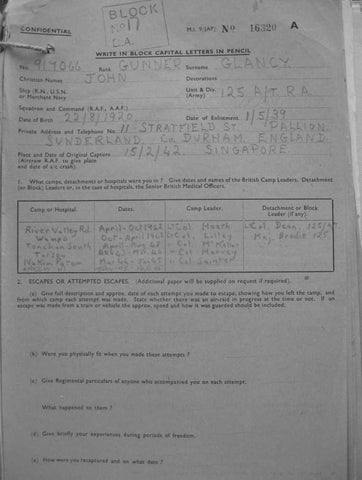 BLOCK
No 11
C.A.
CONFIDENTIAL
M.I. 9/JAP/ No 16320 A
WRITE IN BLOCK CAPITAL LETTERS IN PENCIL
No. 917066 Rank GUNNER Surname GLANCY
Christian Names JOHN Decorations
Ship (R.N., U.S.N. or Merchant Navy Unit & Div. (Army) 125 A/T R.A.
Squadron and Command (R.A.F., A.A.F.)
Date of Birth 22/8/1920 Date of Enlistment 1/5/39
Private Address and Telephone No. 11 STRATFIELD St. PALLION.
SUNDERLAND Co. DURHAM. ENGLAND.
Place and Date of Original Capture 15/2/42 SINGAPORE
(Aircraft R.A.F. to give plane
and date of a/c crash).
1. What camps, detachments or hospitals were you in? Give dates and names of the British Camp Leaders, Detachment
(or Block) Leaders or, in the case of hospitals, the Senior British Medical Officers.
Camp or Hospital. Dates. Camp Leader. Detachment or Block Leader (if any).
River Valley Rd. April-Oct 1942 Lt Col. Heath Lt Col. Dean, 125/A/T
Wampo Col. Lilley Maj. Brodie 125
Tonchan South Col.
Tarsau Col. Harvey
Nakom Patom Col.
2. ESCAPES OR ATTEMPTED ESCAPES. (Additional paper will be supplied on request if required).
(a) Give full description and approx. date of each attempt you made to escape, showing how you left the camp, and
from which camp each attempt was made. State whether there was an air-raid in progress at the time or not. If an
escape was made from a train or vehicle the approx. speed and how it was guarded should be included.
(b) Were you physically fit when you made these attempts?
(c) Give Regimental particulars of anyone who accompanied you on each attempt.
What happened to them?
(d) Give briefly your experiences during periods of freedom.
(e) How were you recaptured and on what date?